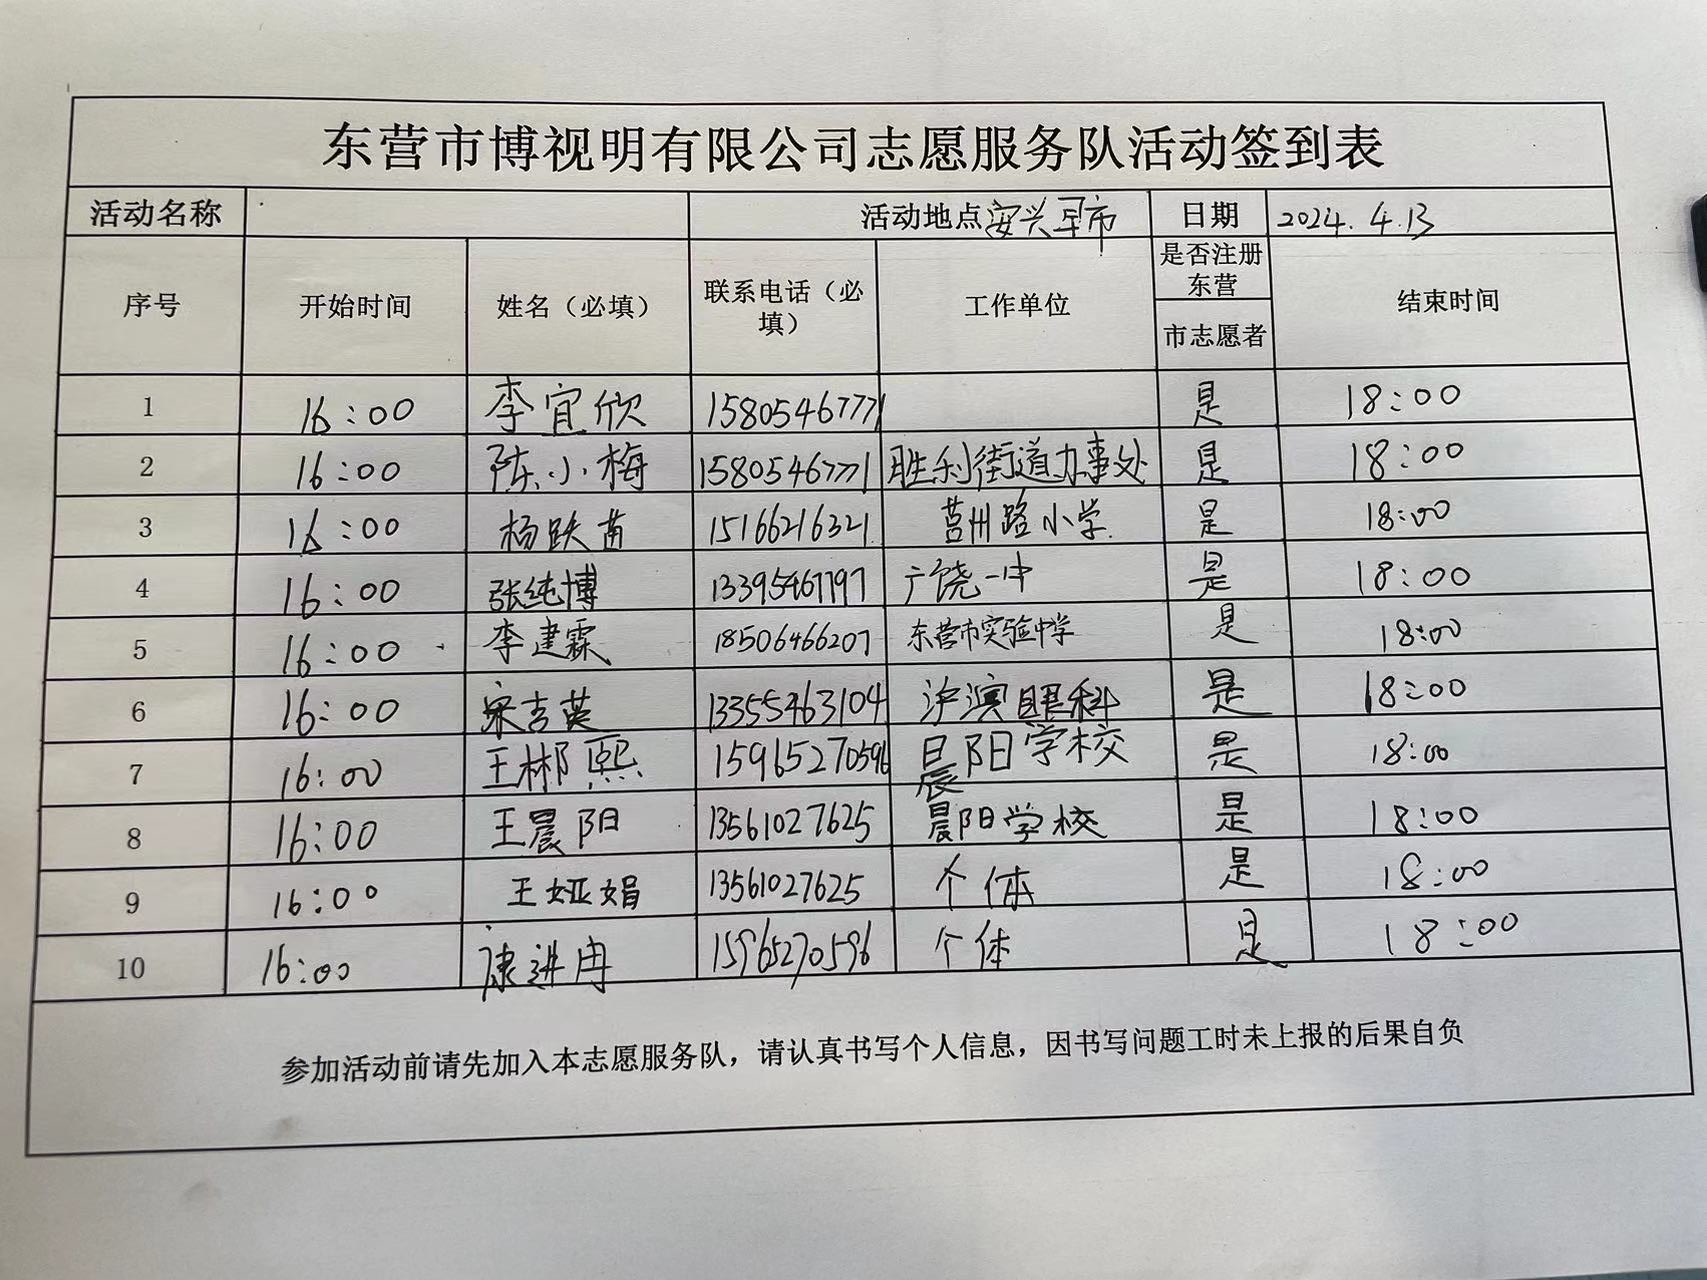 东营市博视明有限公司志愿服务队活动签到表
活动名称 活动地点 安兴早市 日期 2024.4.13
序号 开始时间 姓名（必填） 联系电话（必填） 工作单位 是否注册东营市志愿者 结束时间
1 16:00 李宜欣 15805467771 是 18:00
2 16:00 陈小梅 15805467771 胜利街道办事处 是 18:00
3 16:00 杨跃苗 15166216321 莒州路小学 是 18:00
4 16:00 张纯博 13395467797 广饶一中 是 18:00
5 16:00 李建霖 18506466207 东营市实验中学 是 18:00
6 16:00 宋吉英 13355463104 沪滨眼科 是 18:00
7 16:00 王彬熙 15965270596 晨阳学校 是 18:00
8 16:00 王晨阳 13561027625 晨阳学校 是 18:00
9 16:00 王娅娟 13561027625 个体 是 18:00
10 16:00 康进冉 15965270596 个体 是 18:00
参加活动前请先加入本志愿服务队，请认真书写个人信息，因书写问题工时未上报的后果自负